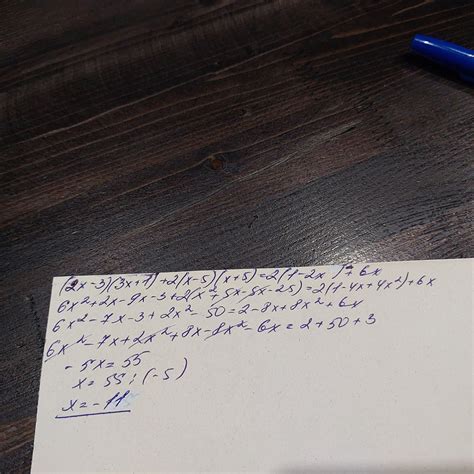 (2x-3)(3x+1)+2(x-5)(x+5)=2(1-2x)²+6x
6x²+2x-9x-3+2(x²+5x-5x-25)=2(1-4x+4x²)+6x
6x²-7x-3+2x²-50=2-8x+8x²+6x
6x²-7x+2x²+8x-8x²-6x=2+50+3
-5x=55
x=55:(-5)
x=-11